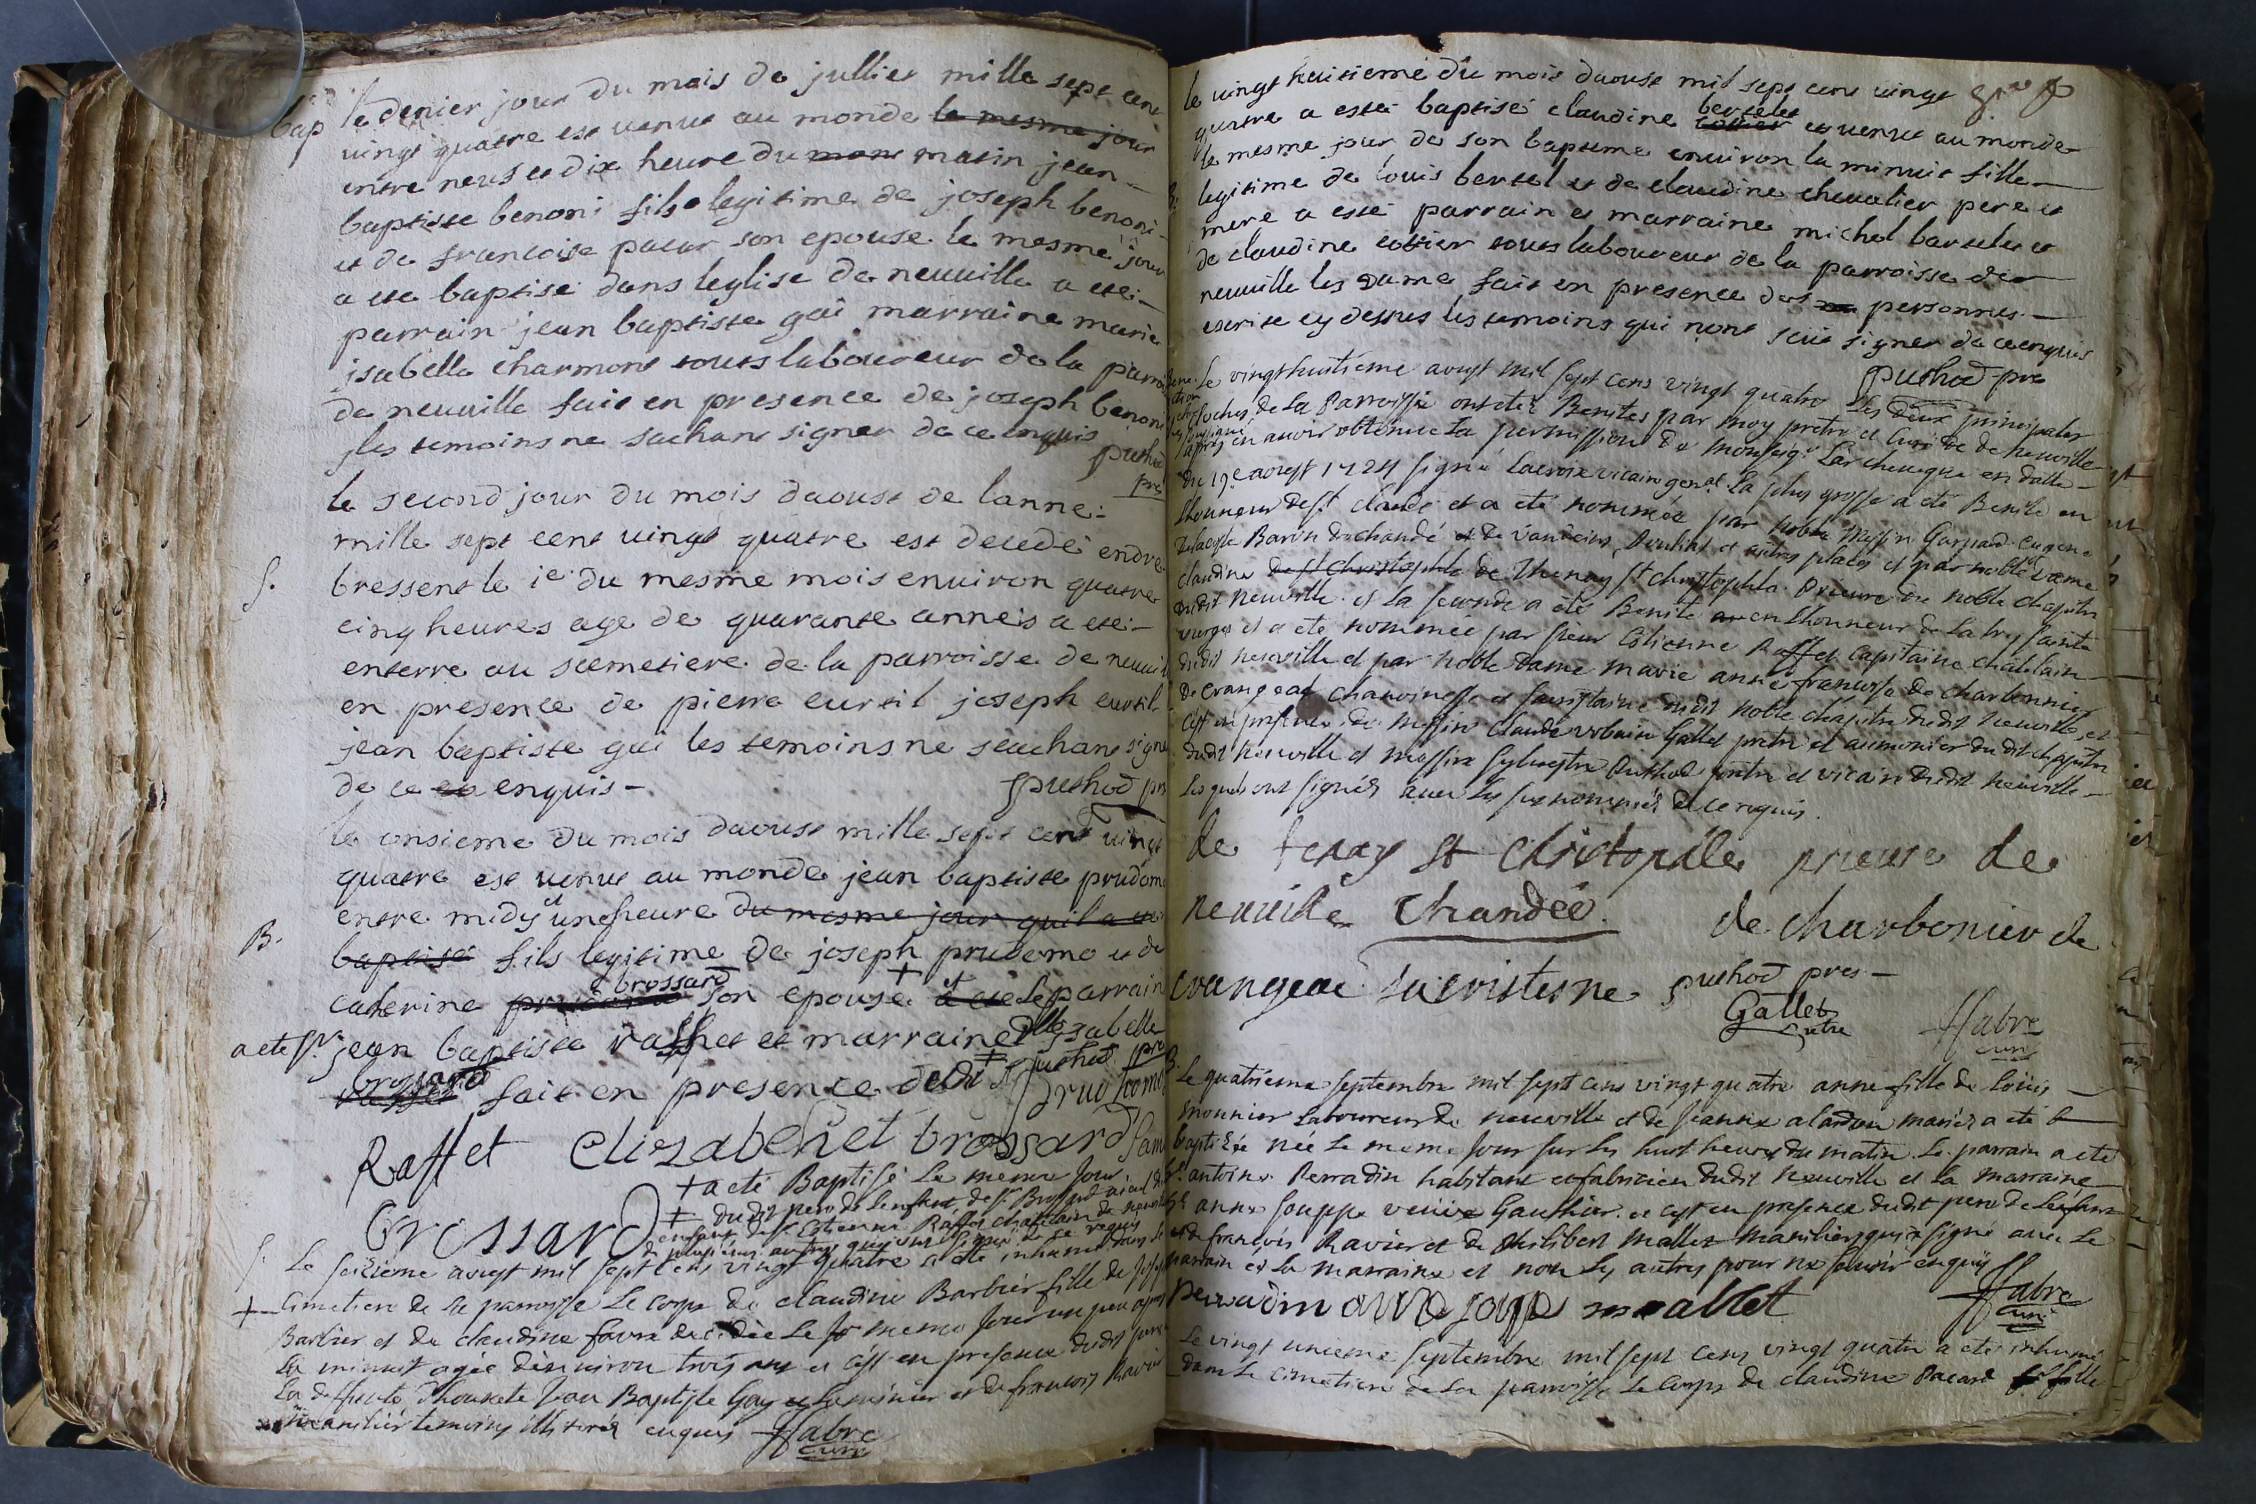 bap
le denier jour du mois de jullies mille sept cent
vingt quatre est venut au monde le mesme jour
entre neuf et dix heure du mans matin jean
baptiste benoni fils legitime de joseph benoni
et de francoise pacur son epouse le mesme jour
a ete baptisé dans leglise de neuville a eté
parrain jean baptiste gai marraine marie
jsabelle charmont touts laboureur de la parroi
de neuville fait en presence de joseph benoni
les temoins ne sachant signer de ce enquis
puthod
pre
le second jour du mois daoust de lanne
mille sept cent vingt quatre est decedé endre
S.
bressent le ie du mesme mois environ quatre
cinq heures age de quarante anneis a eté
enterre au semetiere de la parroisse de neuvil
en presence de pierre curtil joseph curtil
jean baptiste gui les temoins ne seachant signe
de ce en enquis
puthod pre
le onsieme du mois daoust mille sept cent vingt
quatre est venut au monde jean baptiste prudom
entre midy et une heure du mesme jour quil a ete
B.
baptisé fils legitime de joseph prudomo et de
brossard
caterine son epouse + a eté et le parrain
acte jean baptiste raffet et marraine dlle isabelle
brossard
raffet fait en presence dudit ‡ puthod pre
prudhome
Raffet Elizabehet brossard
+ a eté Baptisé le meme jour
‡ dudit pere de lenfant, de sr Brossard aieul de
enfant de sr Etienne Raffet chatelain de neuville
de plusieurs autres qui ont signé de ce requis
brossard
S.
Le seizieme aougt mil sept cens vingt quatre a eté inhumé dans le
+
Cimetiere de la parroisse le corps de claudine Barbier fille de joseph
Barbier et de claudine favre decédée le meme jour un peu apres
la minuit agée denviron trois ans et c'est en presence dudit pere
la deffunte d'honnete Jean Baptiste Gay et de francois Ravier
manilier temoins illiterés enquis ffabre
curé
le vingt huitieme du mois daoust mil sept cent vingt
quatre a esté baptisé claudine bertelet cottier et venut au monde
le mesme jour de son bapteme environ la minuit fille
legitime de louis bertel et de claudine chevalier pere et
mere a esté parrain et marraine michel bartelet et
de claudine cottier touts laboureur de la parroisse de
neuville les dame fait en presence des personnes
escrite cy dessus les temoins qui nont sceu signer de ce enquis
puthod pre
Le vingthuitieme aougt mil sept cens vingt quatre Les deux principales
cloches de la Parroisse ont eté Benites par moy pretre et curé de de Neuville
soussigné
apres en avoir obtenu la permission de monseigr Larcheveque en datte
du 19e aougt 1724 signé Lacroix vicaire genal La plus grosse a eté Benite en
lhonneur de st claude et a eté nommée par noble Messire Gaspard Eugene
Delacoste Baron de chandé et de vandeins, et autres places et par noble dame
claudine de st christophle de Thenay st christophle Prieure du noble chapitre
dudit Neuville et la seconde a eté Benite en lhonneur de la tres sainte
vierge et a eté nommée par sieur Etienne Raffet capitaine chatelain
dudit neuville et par noble dame marie anne françoise de charbonnier
de Crangeac chanoinesse et sacristaine dudit noble chapitre dudit Neuville et
c'est en presence de Messire claude urbain Gallet pretre et aumonier dudit chapitre
dudit Neuville et messire sylvestre Puthod pretre et vicaire dudit Neuville
Lesquels ont signés avec les susnommés de ce requis.
de tenay st christophle prieure de
neuville Chandée
de charbonier de
Crangeac sacristene
puthod pres
Gallet
ptre
ffabre
curé
B.
Le quatrieme septembre mil sept cens vingt quatre anne fille de loüis
monnier Laboureur de neuville et de Jeanne mariés a eté b
baptizée née le meme jour sur les huit heures du matin. le parrain a eté
sr antoine Perradin habitant et fabricien dudit Neuville et la marraine
anne Jouppe veuve Gauthier. et c'est en presence dudit pere de Lenfant
et de francois Ravier et de Philibert mallet manilier qui a signé avec le
parrain et la marraine et non les autres pour ne savoir enquis
perradin anne joupe mallet
ffabre
curé
Le vingt unieme septembre mil sept cens vingt quatre a eté inhumé
dans le cimetiere de la parroisse le corps de claudine Pacard fille